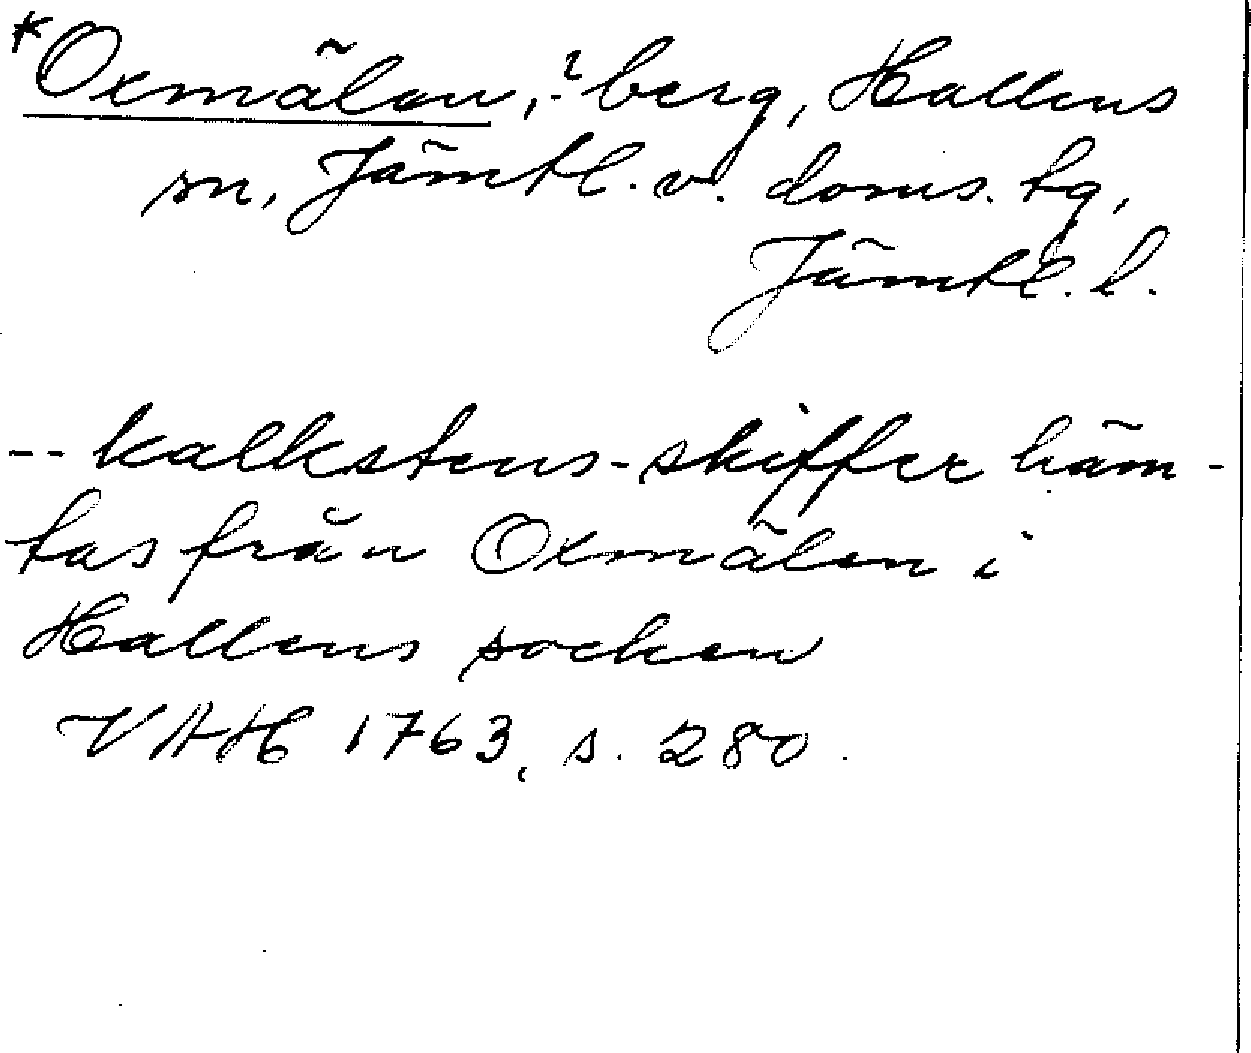 *Oxmälen, ? berg, Hallens
sn, Jämtl. v. doms. tg,
Jämtl. l.
-- kalkstens-skiffer häm-
tas från Oxmälen i
Hallens socken
VAH 1763, s. 280.